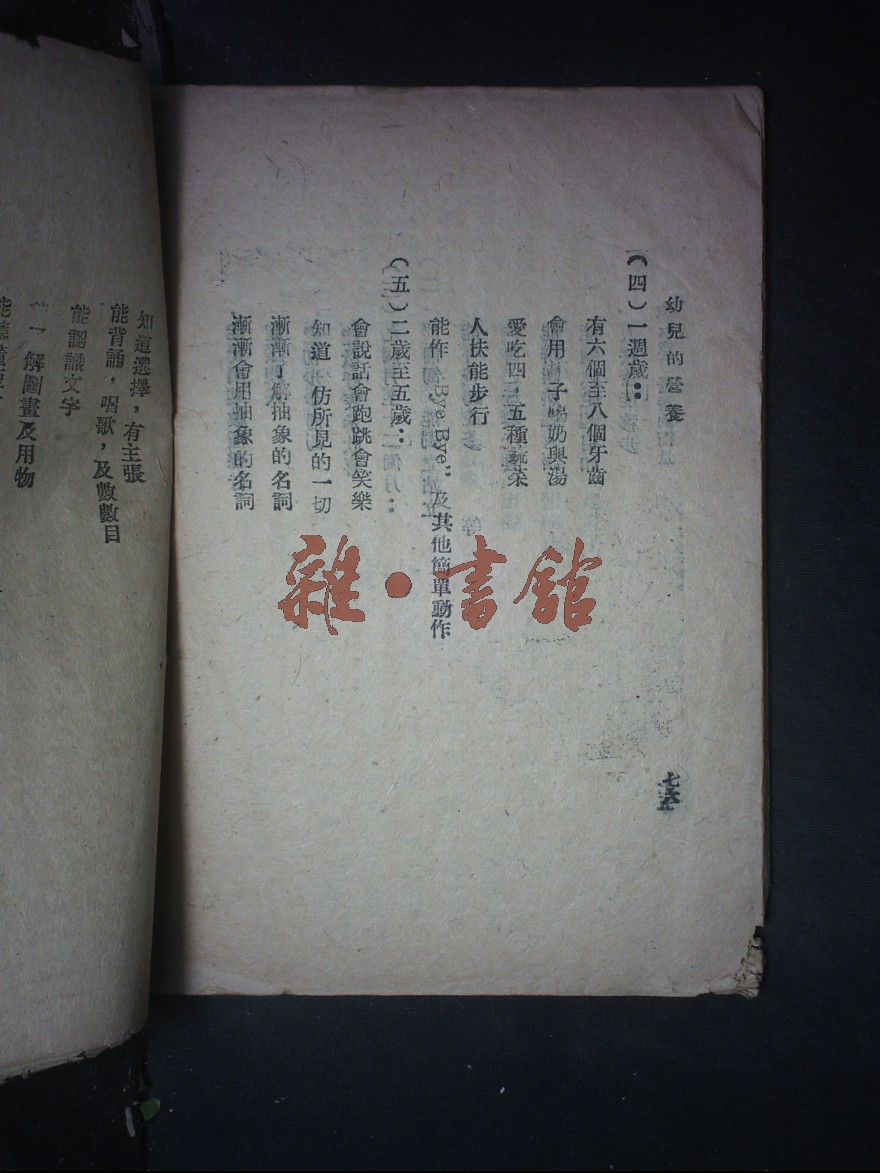 幼兒的營養
（四）一週歲：
有六個至八個牙齒
會用 子喝奶與湯
愛吃四，五種蔬菜
人扶能步行
能作“Bye Bye”及其他簡單動作
（五）二歲至五歲：
會說話會跑跳會笑樂
知道 仿所見的一切
漸漸了解抽象的名詞
漸漸會用抽象的名詞
知道選擇，有主張
能背誦，唱歌，及數數目
能認識文字
解圖畫及用物
雜·書館